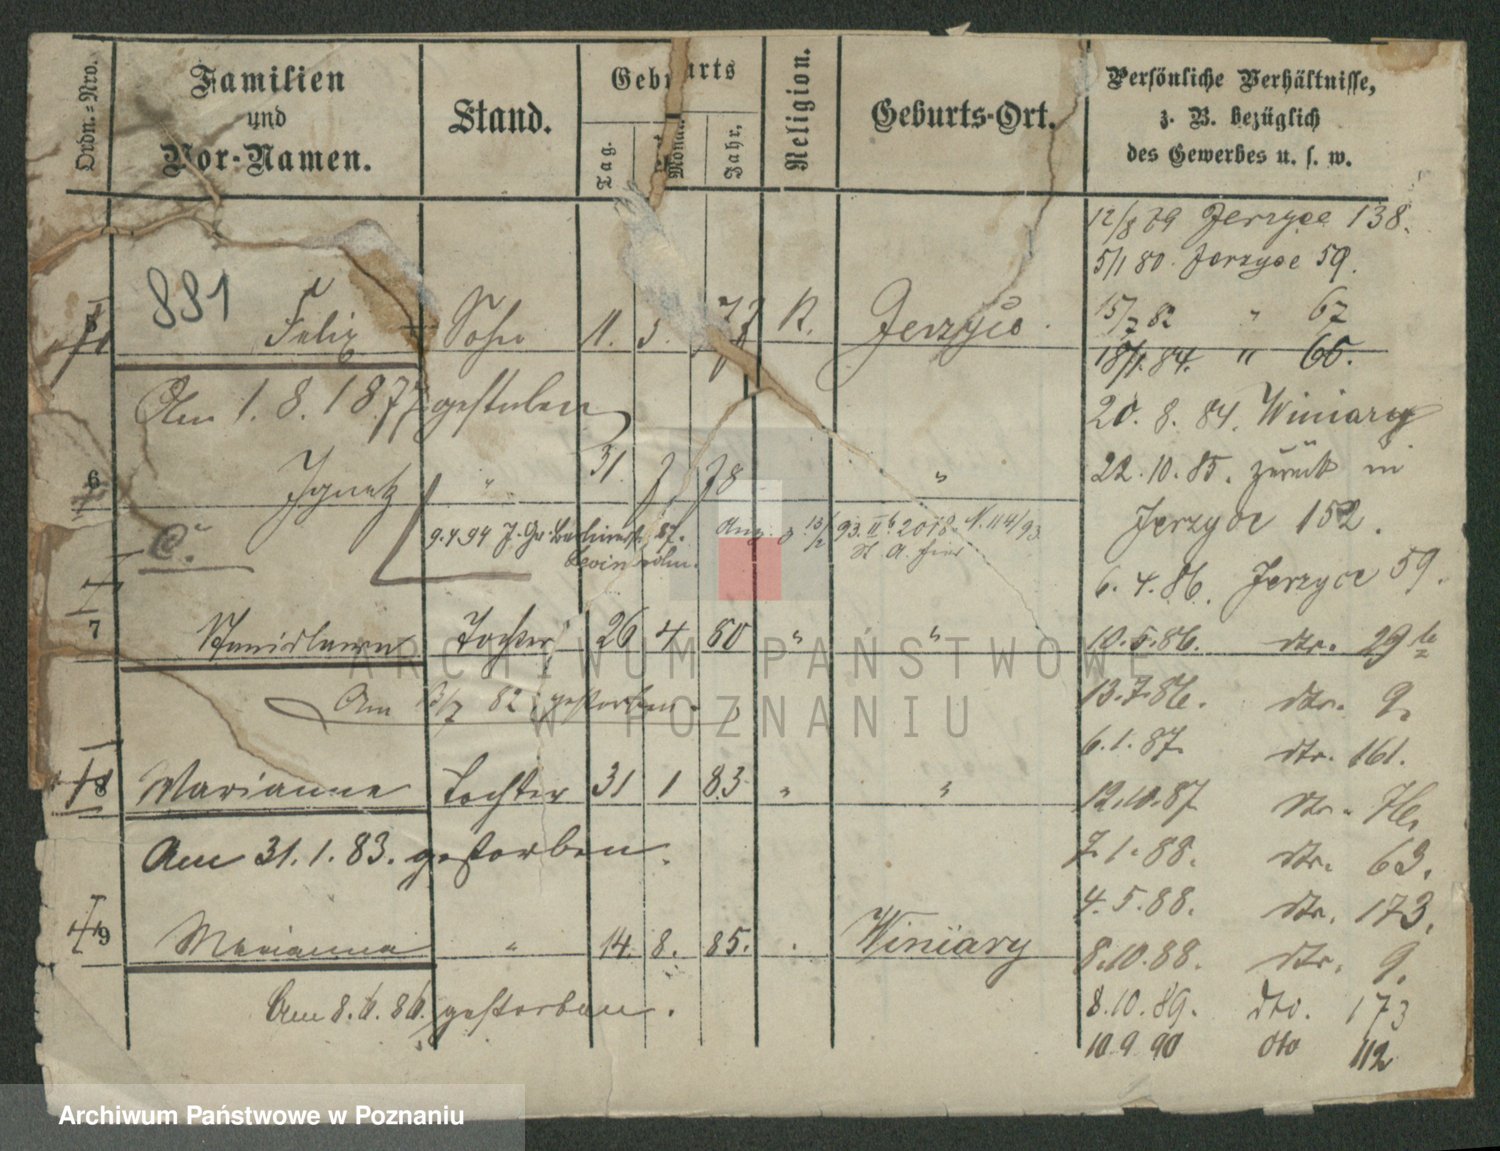 Ordn.-Nro.
Familien
und
Vor-Namen.
Stand.
Geburts
Tag.
Monat
Jahr,
Religion.
Geburts-Ort.
Persönliche Verhältnisse,
z. B. bezüglich
des Gewerbes u. s. w.
12/8 79 Jerzyce 138.
5/1 80. Jerzyce 59.
15/7 82 " 67
18/1. 84. " 65.
20. 8. 84. Winiary
22. 10. 85. zurück in
Jerzyce 152.
6. 4. 86. Jerzyce 59.
10. 5. 86. dto. 29 b
13. 7. 86. dto. 9.
6. 1. 87. dto. 161.
12. 10. 87 dto. 76.
7. 1. 88. dto. 63.
4. 5. 88. dto. 173.
8. 10. 88. dto. 9.
8. 10. 89. dto. 173
10. 9. 90 dto 112
881
5 Felix Sohn 11. 5. 77 K. Jerzyce.
Am 1. 8. 1877 gestorben
6 Ignatz " 31. 7 78 "
9.4.94
7 Stanislawa Tochter 26 4 80 " "
Am 13/7 82 gestorben.
8 Marianna Tochter 31 1 83 " "
Am 31. 1. 83. gestorben.
9 Marianna " 14. 8. 85. . Winiary
Am 8. 6. 86. gestorben.
ARCHIWUM PAŃSTWOWE
W POZNANIU
Archiwum Państwowe w Poznaniu